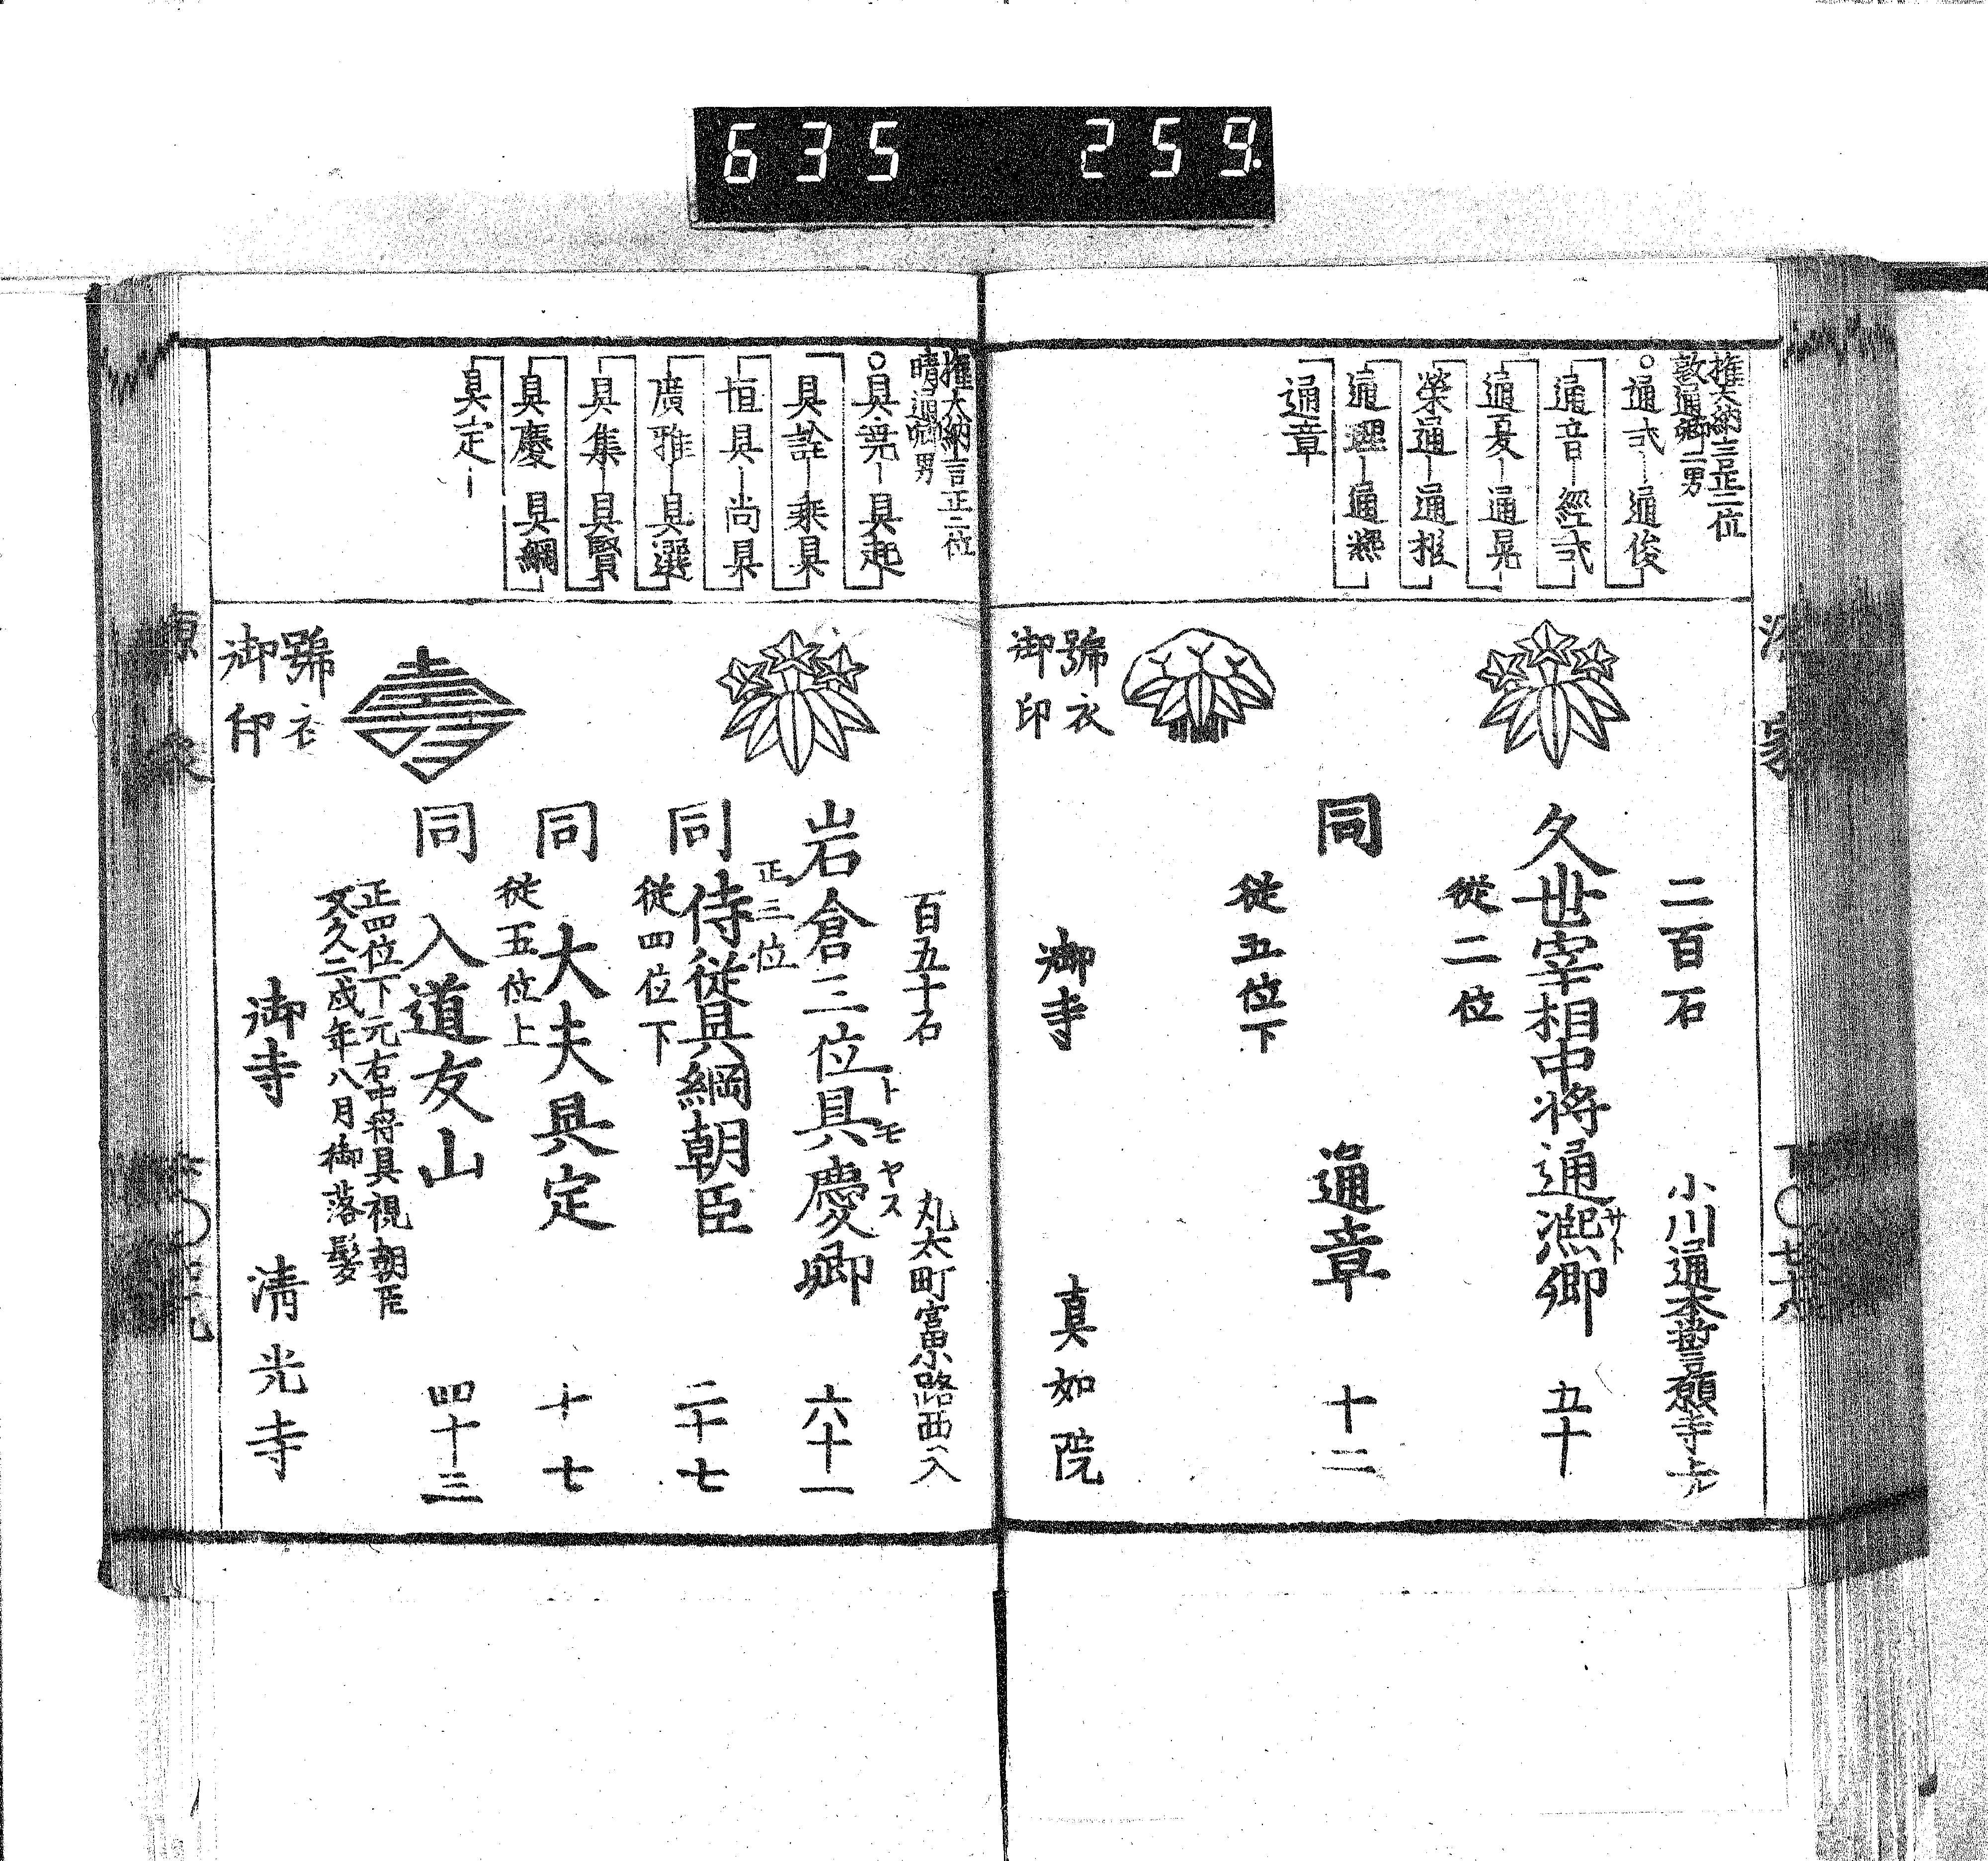 635 259.
権大納言正二位
敦通卿二男
○通式―通俊
通音―經式
通夏―通晃
榮通―通根
通理―通熙
通章
二百石
小川通本誓願寺上
久世宰相中将通熙卿 五十
サト
従二位
同 通章 十二
従五位下
御印 號衣
御寺 真如院
権大納言正二位
晴通卿男
○具堯―具起
具詮―乘具
恒具―尚具
廣雅―具選
具集―具賢
具慶 具綱
具定―
百五十石
丸太町富小路西へ入
岩倉三位具慶卿 六十一
トモヤス
正三位
同 侍従具綱朝臣 二十七
従四位下
同 大夫具定 十七
従五位上
同 入道友山 四十三
正四位下元右中将具視朝臣
文久二戌年八月御落髪
御印 號衣
御寺 清光寺